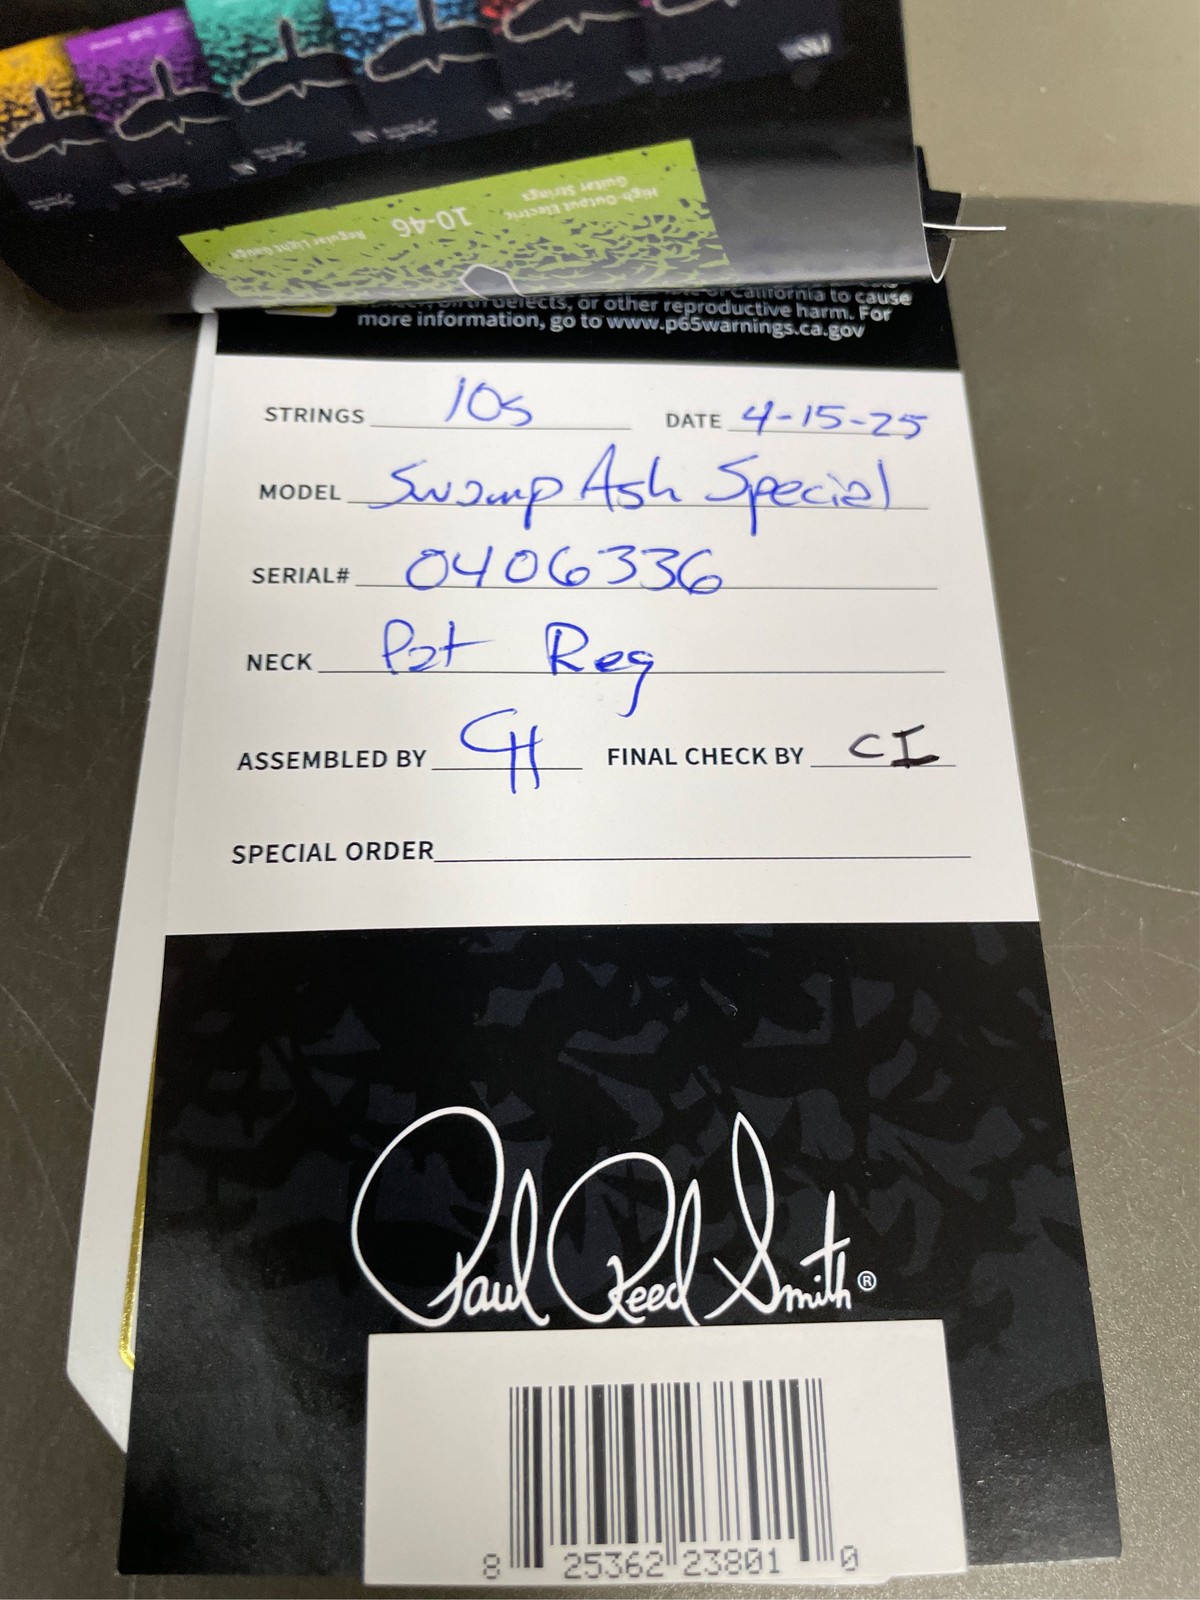 High-Output Electric
Guitar Strings
10-46
Regular Light Gauge
birth defects, or other reproductive harm. For
more information, go to www.p65warnings.ca.gov
STRINGS 10s DATE 4-15-25
MODEL Swamp Ash Special
SERIAL# 0406336
NECK Pat Reg
ASSEMBLED BY CH FINAL CHECK BY CI
SPECIAL ORDER
Paul Reed Smith®
8 25362 23801 0